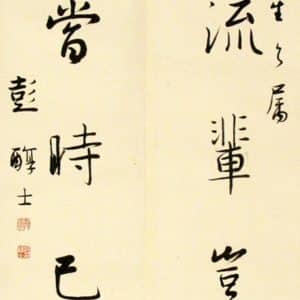 生之屬
流輩豈
當時已
彭醇士